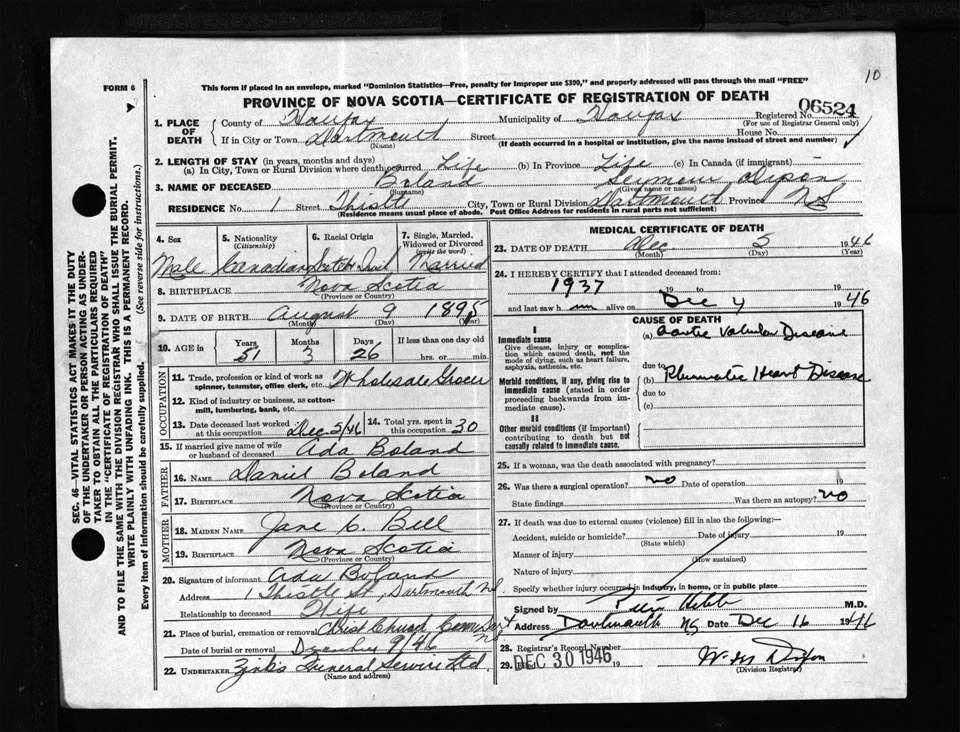 10
FORM 6
This form if placed in an envelope, marked "Dominion Statistics—Free, penalty for improper use $300," and properly addressed will pass through the mail "FREE"
PROVINCE OF NOVA SCOTIA—CERTIFICATE OF REGISTRATION OF DEATH
Registered No. 06524
(For use of Registrar General only)
1. PLACE OF DEATH
County of Halifax Municipality of Halifax
If in City or Town Dartmouth Street House No.
(Name) (If death occurred in a hospital or institution, give the name instead of street and number)
2. LENGTH OF STAY (in years, months and days)
(a) In City, Town or Rural Division where death occurred Life (b) In Province Life (c) In Canada (if immigrant) —
3. NAME OF DECEASED Boland Seymour
(Surname) (Given name or names)
RESIDENCE No. 1 Street Thistle City, Town or Rural Division Dartmouth Province NS
(Residence means usual place of abode. Post Office Address for residents in rural parts not sufficient)
4. Sex Male
5. Nationality (Citizenship) Canadian
6. Racial Origin Scotch Irish
7. Single, Married, Widowed or Divorced (write the word) Married
8. BIRTHPLACE Nova Scotia
(Province or Country)
9. DATE OF BIRTH August 9 1895
(Month) (Day) (Year)
10. AGE in Years 51 Months 3 Days 26 If less than one day old hrs. or min.
OCCUPATION
11. Trade, profession or kind of work as spinner, teamster, office clerk, etc. Wholesale Grocer
12. Kind of industry or business, as cotton-mill, lumbering, bank, etc.
13. Date deceased last worked at this occupation Dec 5/46 14. Total yrs. spent in this occupation 30
15. If married give name of wife or husband of deceased Ada Boland
FATHER
16. NAME Daniel Boland
17. BIRTHPLACE Nova Scotia
(Province or Country)
MOTHER
18. MAIDEN NAME Jane C. Bell
19. BIRTHPLACE Nova Scotia
(Province or Country)
20. Signature of informant Ada Boland
Address 1 Thistle St, Dartmouth NS
Relationship to deceased Wife
21. Place of burial, cremation or removal Christ Church Cem Dart NS
Date of burial or removal December 9/46
22. UNDERTAKER Zink's General Service Ltd
(Name and address)
MEDICAL CERTIFICATE OF DEATH
23. DATE OF DEATH Dec 5 1946
(Month) (Day) (Year)
24. I HEREBY CERTIFY that I attended deceased from:
1937 19 to 19
and last saw h im alive on Dec 4 1946
CAUSE OF DEATH
I
Immediate cause
Give disease, injury or complication which caused death, not the mode of dying, such as heart failure, asphyxia, asthenia, etc.
(a) Aortic Valvular Disease
due to
Morbid conditions, if any, giving rise to immediate cause (stated in order proceeding backwards from immediate cause).
(b) Rheumatic Heart Disease
due to
(c)
II
Other morbid conditions (if important) contributing to death but not causally related to immediate cause.
25. If a woman, was the death associated with pregnancy?
26. Was there a surgical operation? no Date of operation 19
State findings Was there an autopsy? no
27. If death was due to external causes (violence) fill in also the following:—
Accident, suicide or homicide? Date of injury 19
(State which)
Manner of injury
(How sustained)
Nature of injury
Specify whether injury occurred in industry, in home, or in public place
Signed by M.D.
Address Dartmouth NS Date Dec 16 1946
28. Registrar's Record Number
29. Filed DEC 30 1946 19
(Division Registrar)
SEC. 46—VITAL STATISTICS ACT MAKES IT THE DUTY
OF THE UNDERTAKER OR PERSON ACTING AS UNDER-
TAKER TO OBTAIN ALL THE PARTICULARS REQUIRED
IN THE "CERTIFICATE OF REGISTRATION OF DEATH"
AND TO FILE THE SAME WITH THE DIVISION REGISTRAR WHO SHALL ISSUE THE BURIAL PERMIT.
WRITE PLAINLY WITH UNFADING INK. THIS IS A PERMANENT RECORD.
Every item of information should be carefully supplied. (See reverse side for instructions.)